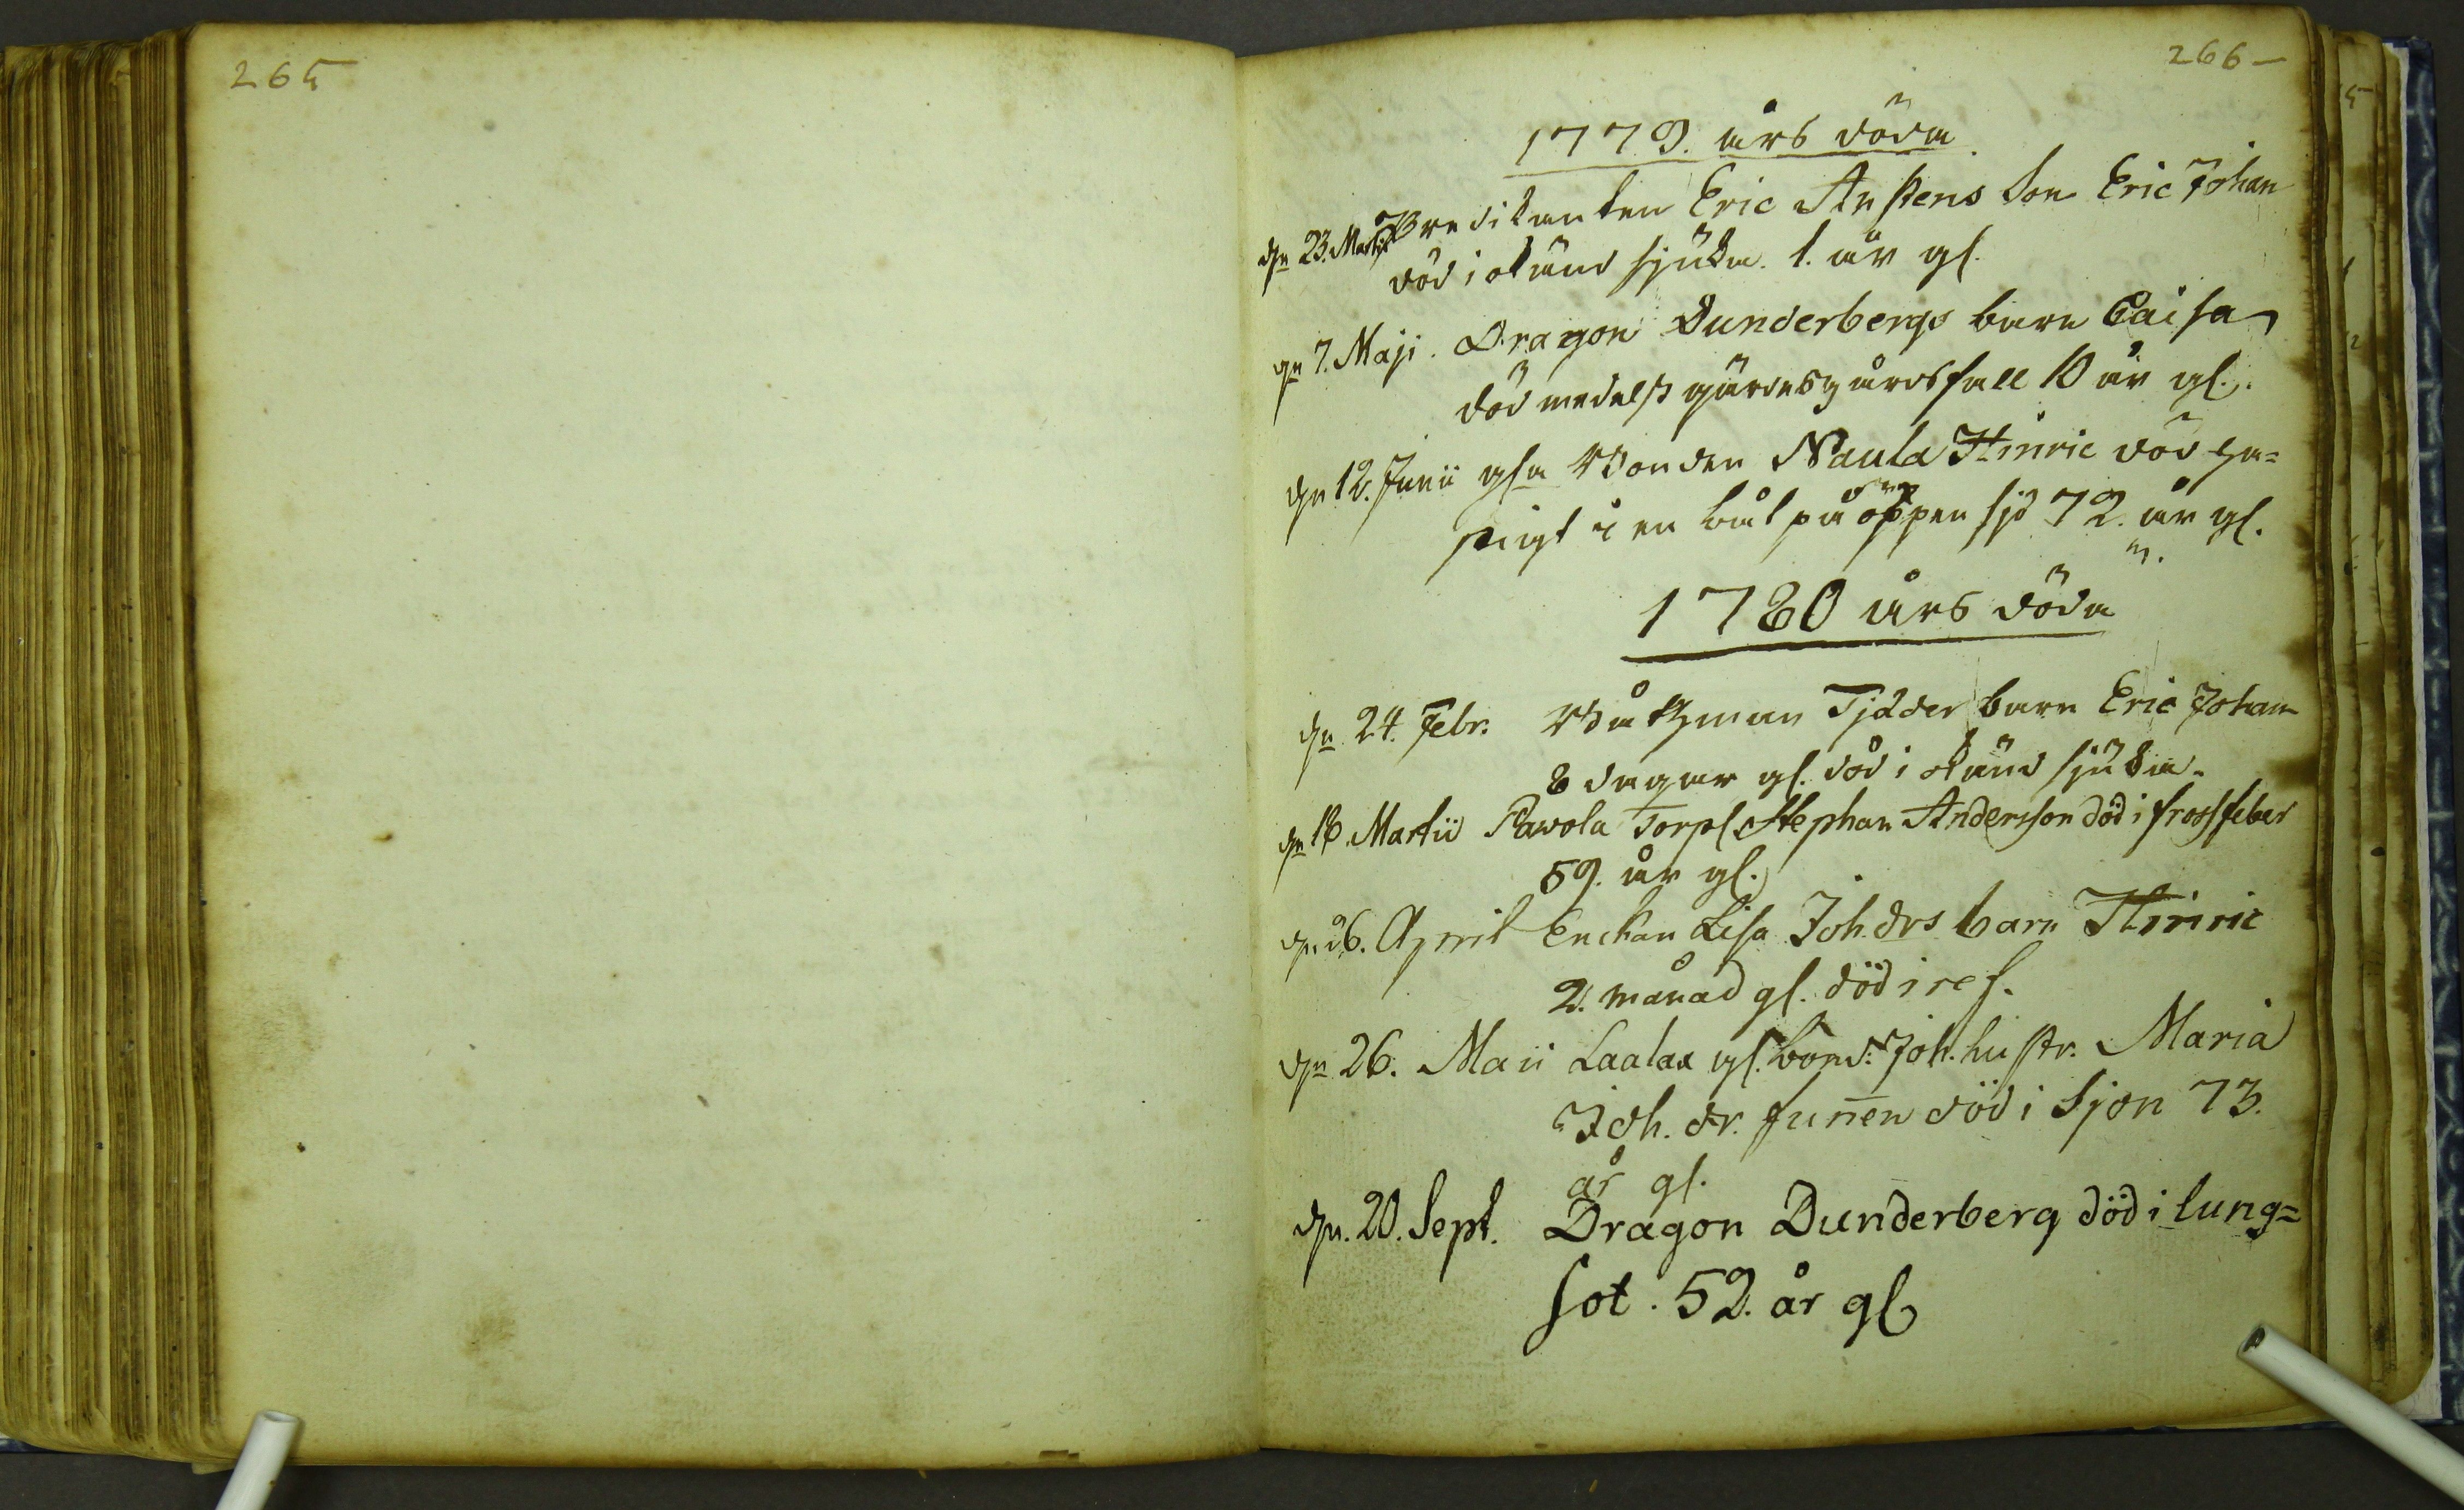 265
266
1779. års döda
dn 23. Martii Predikanten Eric Anstens Son Eric Johan
död i okänd sjukd. 1. år gl.
dn 7. Maji. Dragon Dunderbergs barn Caisa
död medelst gärdesgårdsfall 10 år gl.
dn 12. Junii gla Bonden Naula Hinric död ha=
stigt i en båt på öppen sjö 72. år gl.
1780 års döda
dn 24. Febr. Båtzman Tjäder barn Eric Johan
8 dagar gl. död i okänd sjukd.
dn 18. Martii Pawola Torp. Stephan Andersson död i frossfeber
59. år gl.
dn 26. April Enckan Lisa Joh. drs barn Hinric
2. månad gl. död i ref.
dn 26. Maii Laalax gl. bond. Joh. hustr. Maria
Joh. dr. funen död i Sjön 73.
år gl.
dn. 20. Sept. Dragon Dunderberg död i lung=
sot. 52. år gl